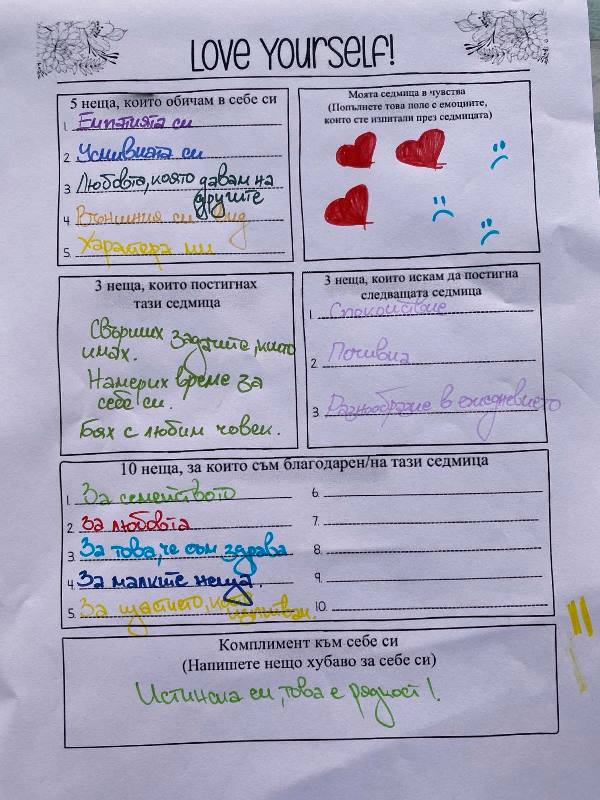 LOVE YOURSELF!
5 неща, които обичам в себе си
1. Емпатията си
2. Усмивката си
3. Любовта, която давам на
другите
4. Външния си вид
5. Характера ми
Моята седмица в чувства
(Попълнете това поле с емоциите,
които сте изпитали през седмицата)
3 неща, които постигнах
тази седмица
Свърших задачите, които
имах.
Намерих време за
себе си.
Бях с любим човек.
3 неща, които искам да постигна
следващата седмица
1. Спокойствие
2. Почивка
3. Разнообразие в ежедневието
10 неща, за които съм благодарен/на тази седмица
1. За семейството
2. За любовта
3. За това, че съм здрава
4. За малките неща.
5. За щастието, което
изпитвам.
6.
7.
8.
9.
10.
Комплимент към себе си
(Напишете нещо хубаво за себе си)
Истинска си, това е рядкост!